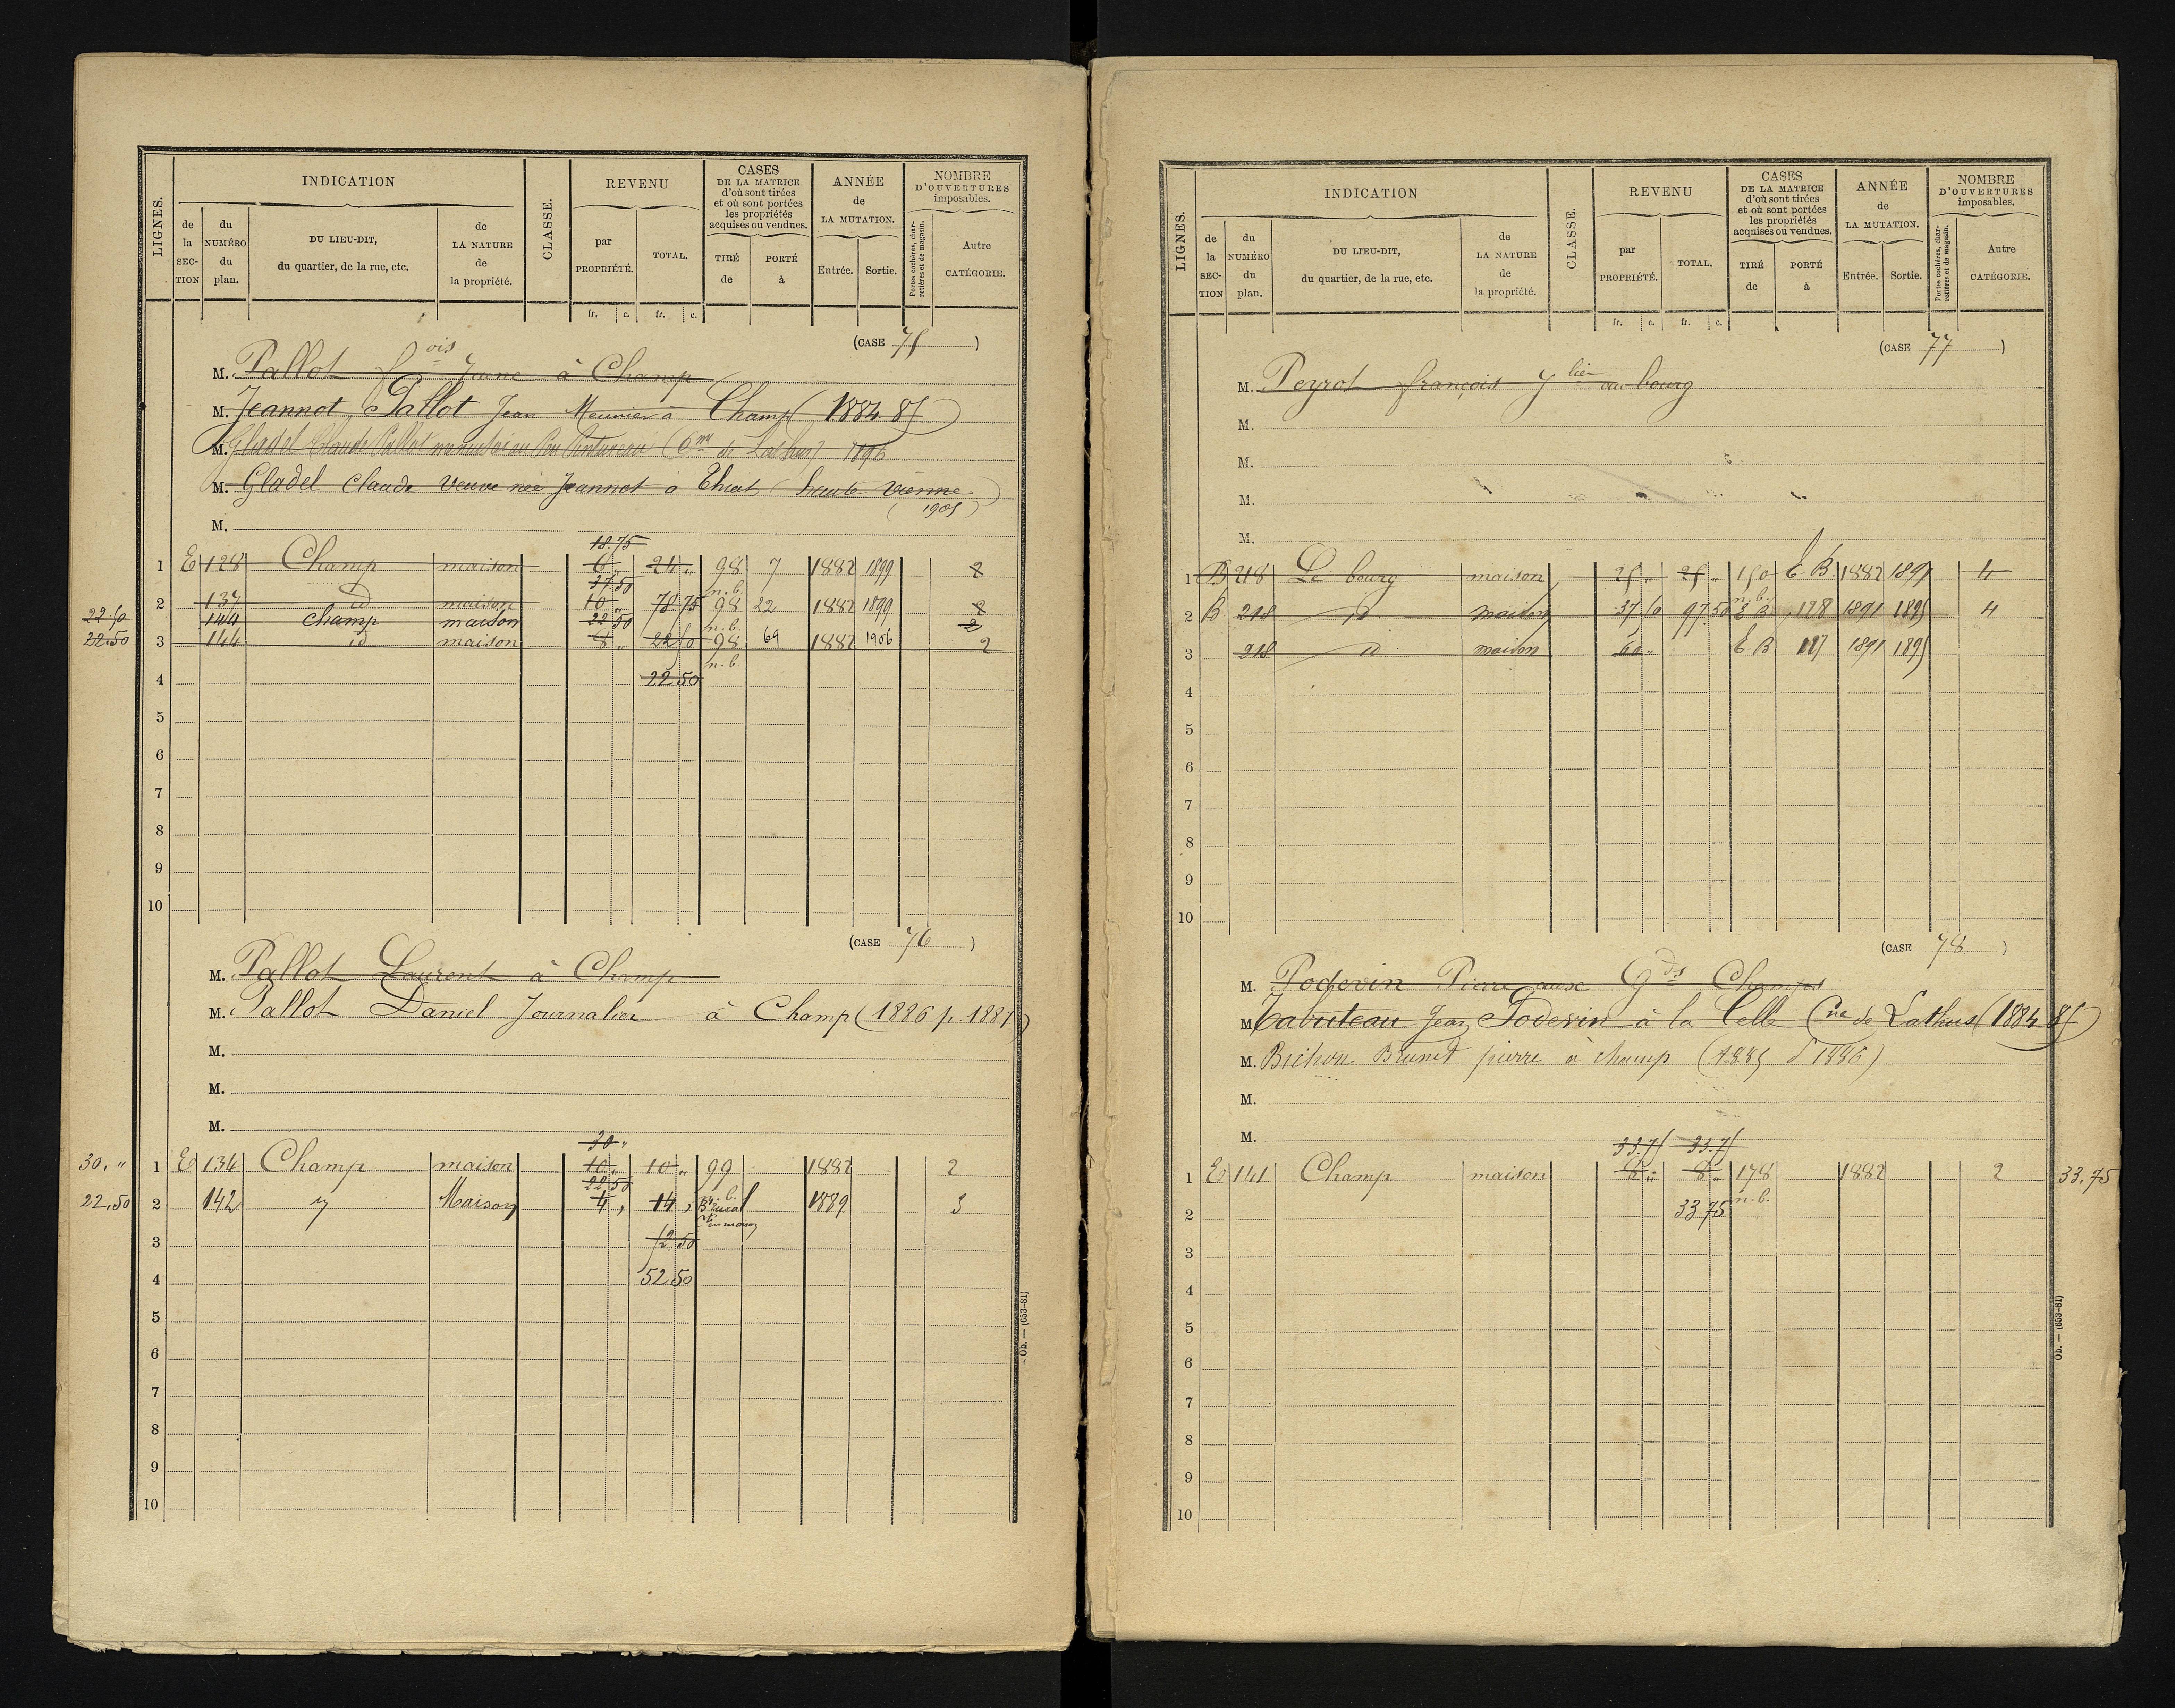 LIGNES.
INDICATION
de la SECTION
du NUMÉRO du plan.
DU LIEU-DIT, du quartier, de la rue, etc.
de LA NATURE de la propriété.
CLASSE.
REVENU
par PROPRIÉTÉ.
TOTAL.
CASES DE LA MATRICE d'où sont tirées et où sont portées les propriétés acquises ou vendues.
TIRÉ de
PORTÉ à
ANNÉE de LA MUTATION.
Entrée.
Sortie.
NOMBRE D'OUVERTURES imposables.
Portes cochères, charretières et de magasin.
Autre CATÉGORIE.
fr. c. fr. c.
(CASE 75 )
M. Pallot fois Jeune à Champ
M. Jeannot Pallot Jean Meunier à Champ (1884 85)
M. Gladel Claude Pallot (Cne de Lathus) 1896
M. Gladel Claude Veuve née Jeannot a Thiat (haute Vienne) (1905)
M.
18.75
1 E 128 Champ maison 6 " 24 " 98 7 1882 1899 2
37.50 n.b.
22.50 2 137 id maison 10 " 78 75 98 22 1882 1899 2
144 Champ maison 22 50 n.b. 2
22.50 3 144 id maison 8 " 22 50 98 69 1882 1906 2
n.b.
4 22 50
5
6
7
8
9
10
(CASE 76 )
M. Pallot Laurent à Champ
M. Pallot Daniel Journalier à Champ (1886 p. 1887)
M.
M.
M.
30 "
30. " 1 E 134 Champ maison 10 " 10 " 99 1882 2
22 50 n.b.
22.50 2 142 Maison 4 , 14 , 1889 3
3 52 50
4 52 50
5
6
7
8
9
10
Ob. — (653-81)
LIGNES.
INDICATION
de la SECTION
du NUMÉRO du plan.
DU LIEU-DIT, du quartier, de la rue, etc.
de LA NATURE de la propriété.
CLASSE.
REVENU
par PROPRIÉTÉ.
TOTAL.
CASES DE LA MATRICE d'où sont tirées et où sont portées les propriétés acquises ou vendues.
TIRÉ de
PORTÉ à
ANNÉE de LA MUTATION.
Entrée.
Sortie.
NOMBRE D'OUVERTURES imposables.
Portes cochères, charretières et de magasin.
Autre CATÉGORIE.
fr. c. fr. c.
(CASE 77 )
M. Peyrot françois au bourg
M.
M.
M.
M.
1 B 218 Le bourg maison 25 " 25 " 150 E.B. 1882 1891 4
n.b.
2 B 218 id maison 37 50 97 50 E B 178 1891 1895 4
3 218 id maison 60 " E.B 117 1891 1895
4
5
6
7
8
9
10
(CASE 78 )
M. Podevin Pierre aux Gds Champs
M. Tabuteau Jean Podevin à la Celle Cne de Lathus (1884 85)
M. Bichon Brunet pierre à champ (1885 p 1886)
M.
M.
33.75 33.75
1 E 141 Champ maison 8 " 8 " 178 1882 2 33.75
n.b.
2 33 75
3
4
5
6
7
8
9
10
Ob. — (653-81)